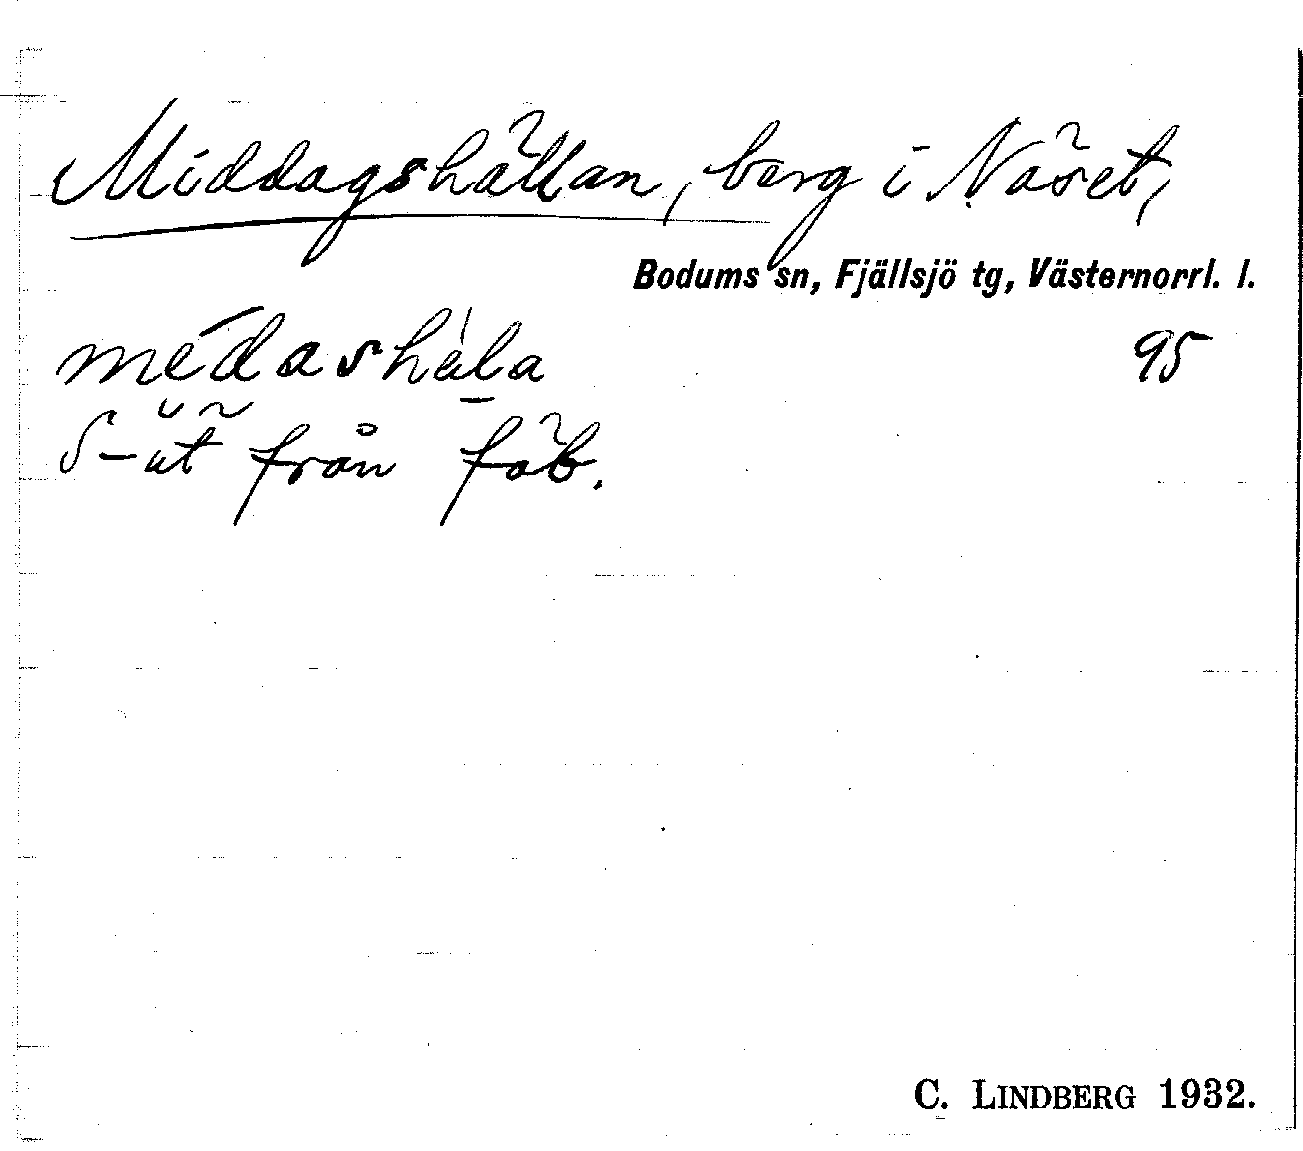 Middagshällan, berg i Näset,
Bodums sn, Fjällsjö tg, Västernorrl. l.
médashàla 95
S-ut från fäb.
C. LINDBERG 1932.